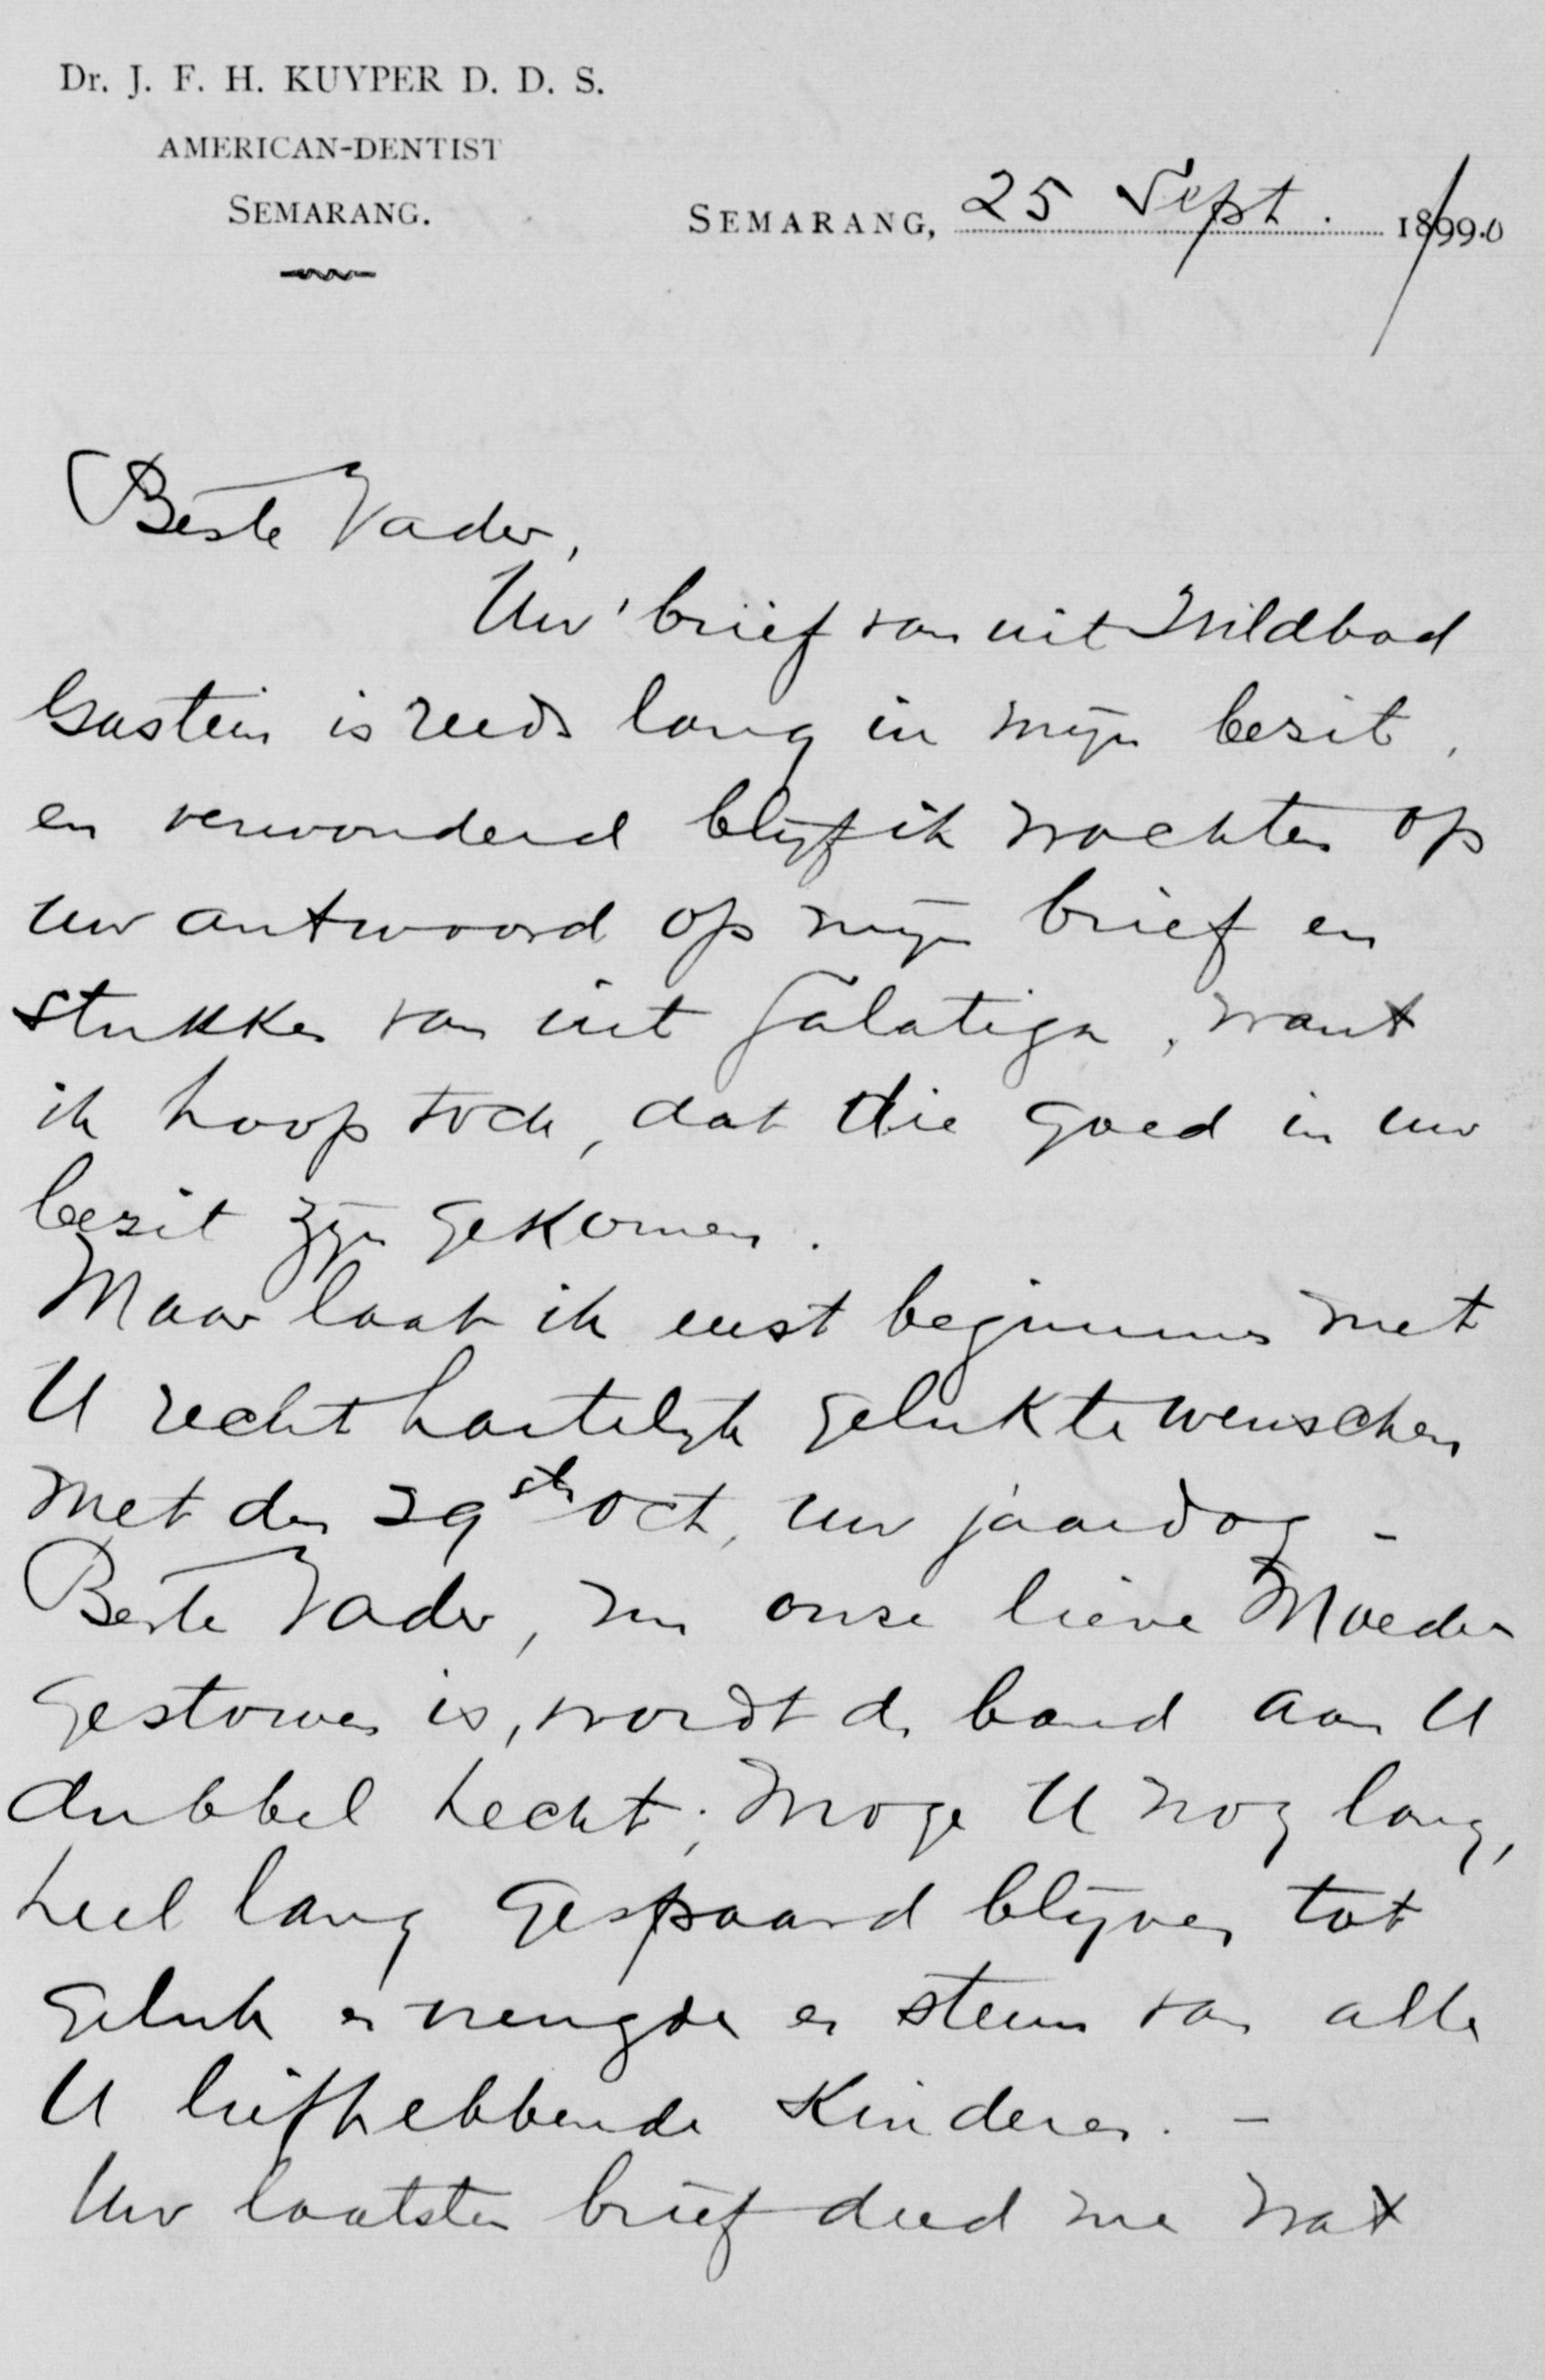 Dr. J. F. H. KUYPER D. D. S.
AMERICAN-DENTIST
SEMARANG.
SEMARANG, 25 Sept. 1899.0
Beste Vader,
Uw brief van uit Wildbad
Gastein is reeds lang in mijn bezit,
en verwonderd blijf ik wachten op
uw antwoord op mijn brief en
stukken van uit Salatiga, want
ik hoop toch, dat die goed in uw
bezit zijn gekomen.
Maar laat ik eerst beginnen met
U recht hartelijk geluk te wenschen
met den 29sten Oct, uw jaardag -
Beste Vader, nu onze lieve Moeder
gestorven is, wordt de band aan U
dubbel hecht; moge U nog lang,
heel lang gespaard blijven tot
geluk en vreugde en steun van alle
U liefhebbende Kinderen. -
Uw laatsten brief deed me wat